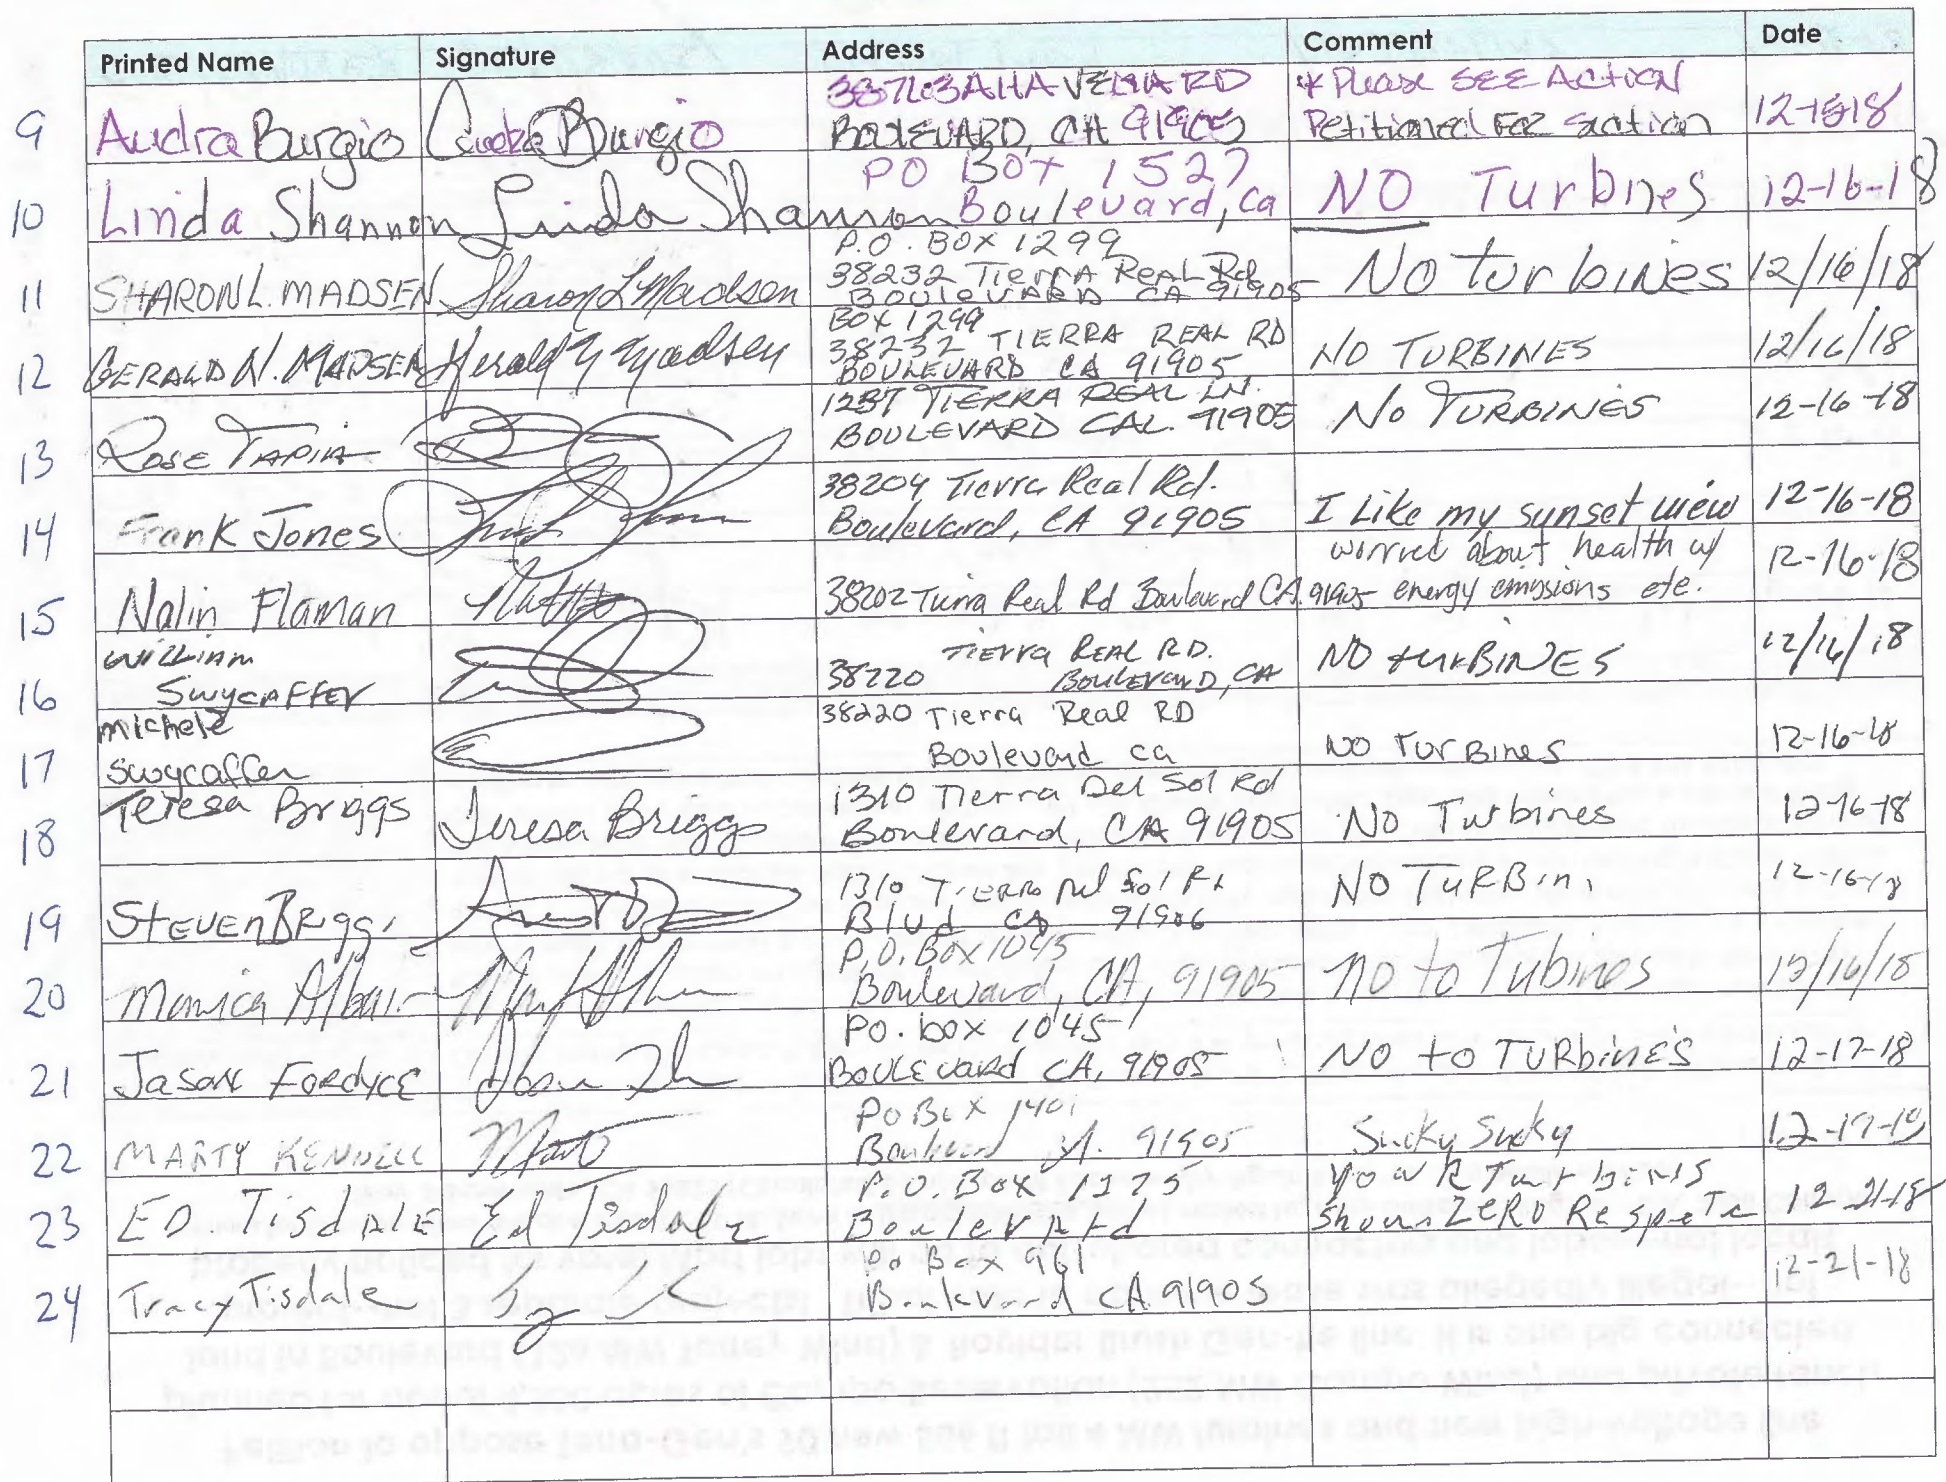 Printed Name Signature Address Comment Date
9 Audra Burgio Audra Burgio 38703 AHA VELMA RD BOULEVARD, CA 91905 * Please SEE ACTION Petitioned FOR Action 12-15-18
10 Linda Shannon Linda Shannon PO Box 1527 Boulevard, Ca NO Turbnes 12-16-18
11 SHARON L. MADSEN Sharon L Madsen P.O. BOX 1299 38232 Tierra Real Rd BOULEVARD CA 91905 No turbines 12/16/18
12 GERALD N. MADSEN Gerald N Madsen BOX 1299 38232 TIERRA REAL RD BOULEVARD CA 91905 NO TURBINES 12/16/18
13 Rose TAPIA 1237 TIERRA REAL LN. BOULEVARD CAL. 91905 No TURBINES 12-16-18
14 Frank Jones 38204 Tierra Real Rd. Boulevard, CA 91905 I Like my sunset view 12-16-18
15 Nalin Flaman 38202 Tierra Real Rd Boulevard CA. 91905 worried about health w/ energy emissions etc. 12-16-18
16 WILLIAM SWYCAFFER 38220 Tierra REAL RD. BOULEVARD, CA NO turBINES 12/16/18
17 michele swycaffer 38220 Tierra Real RD Boulevard ca NO TurBines 12-16-18
18 Teresa Briggs Teresa Briggs 1310 Tierra Del Sol Rd Boulevard, CA 91905 No Turbines 12-16-18
19 STEVEN BRIGGS 1310 TIERRA Del Sol Rd Blvd CA 91906 NO TURBIN. 12-16-18
20 Monica P.O. Box 1045 Boulevard, CA, 91905 no to Tubines 12/16/18
21 JASON FORDYCE PO. box 1045 BOULEvard CA, 91905 NO to TURbines 12-17-18
22 MARTY KENDELL PO Box 1401 Boulevard 91905 Sucky Sucky 12-17-18
23 ED TisdALE Ed Tisdale P.O. Box 1275 BoulevArd YowR Turbines shows ZERO Respete 12-21-18
24 Tracy Tisdale Po Box 961 Boulevard CA 91905 12-21-18